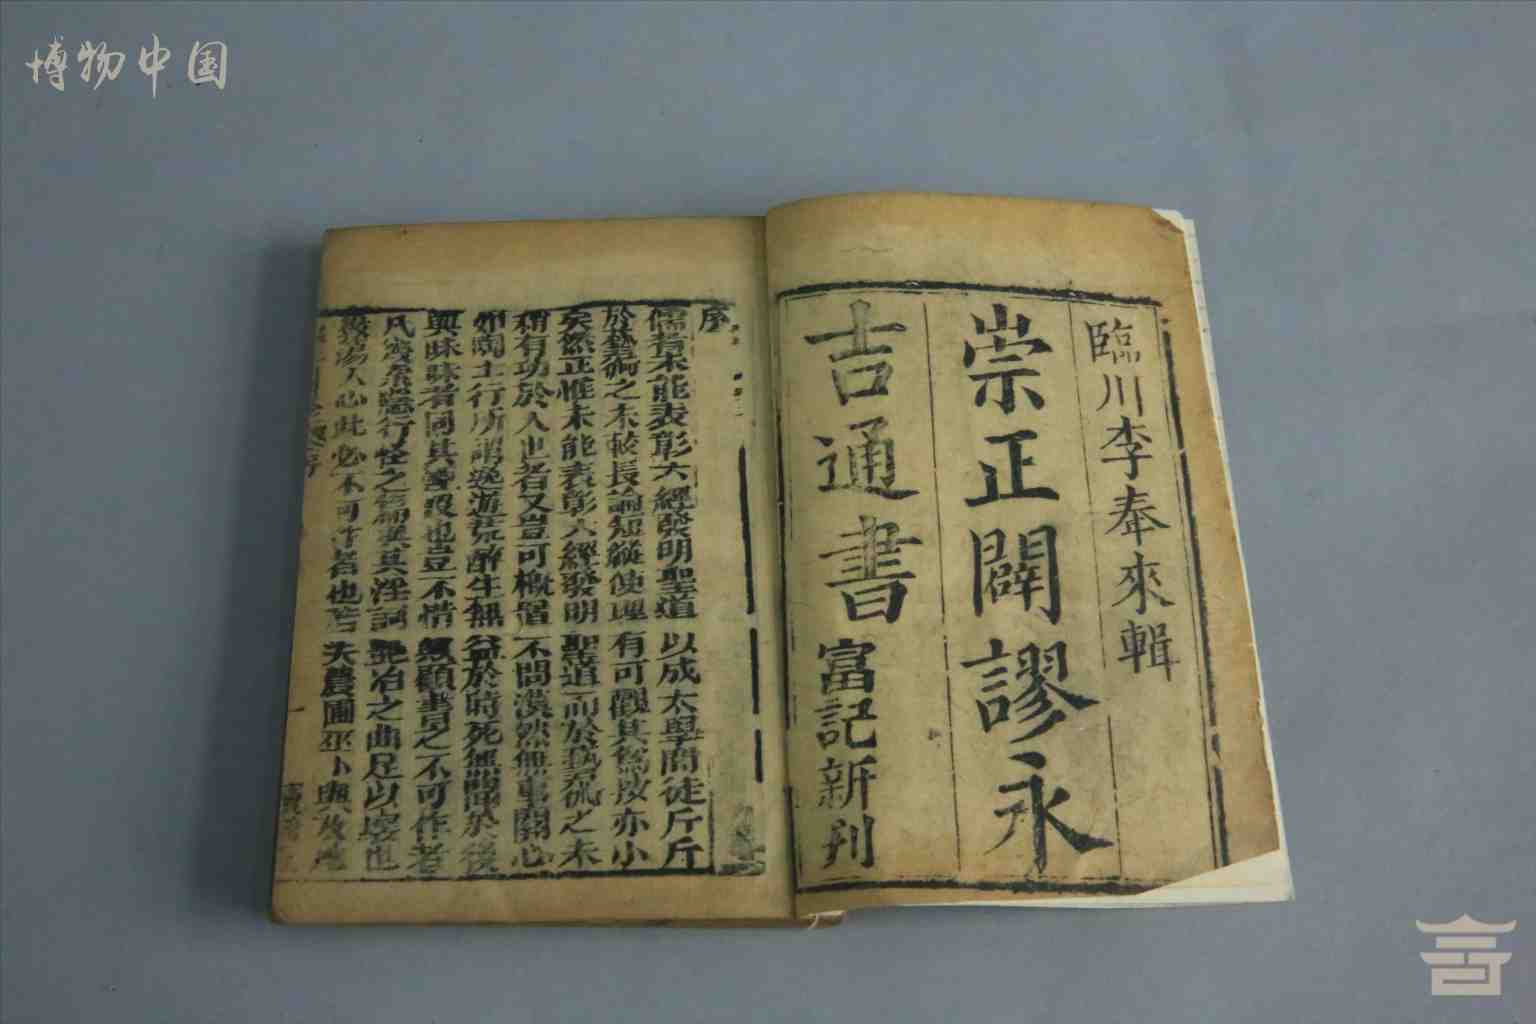 博物中国
臨川李奉來輯
崇正闢謬永
吉通書富記新刊
序
儒者未能表彰六經發明聖道以成太學問徒斤斤
於藝術之末較長論短縱使理有可觀其爲技亦小
矣然正惟未能表彰六經發明聖道而於藝術之未
稍有功於人也者又豈可概置不問漠然無事關心
如閭士行所謂逸遊荒醉生無益於時死無聞於後
與昧昧者同其
也豈不惜
顧書之不可作者
凡
行怪之
其淫詞艷冶之曲足以壞也
人心此必不可作者也若夫農圃巫卜與